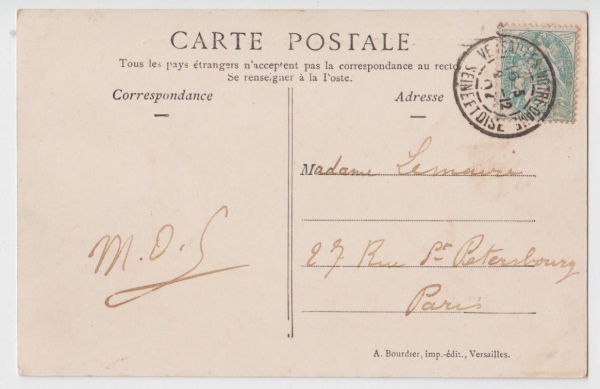 CARTE POSTALE
Tous les pays étrangers n'acceptent pas la correspondance au recto
Se renseigner à la Poste.
Correspondance
Adresse
VERSAILLES NOTRE-DAME
SEINE ET OISE
Madame Lemaire
27 Rue St Petersbourg
Paris
M.O.S
A. Bourdier, imp.-édit., Versailles.